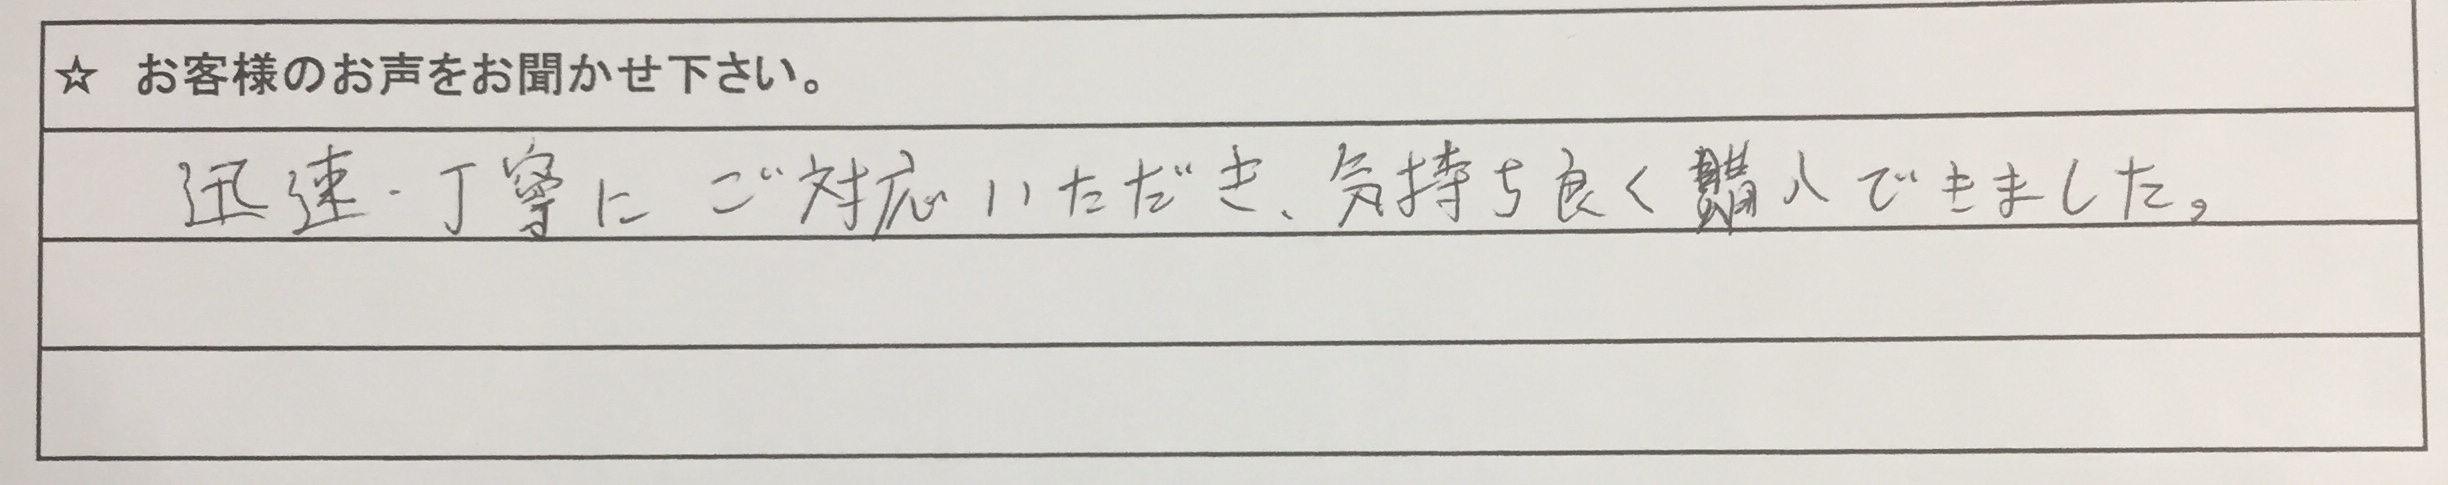 ☆ お客様のお声をお聞かせ下さい。
迅速・丁寧にご対応いただき、気持ち良く購入できました。